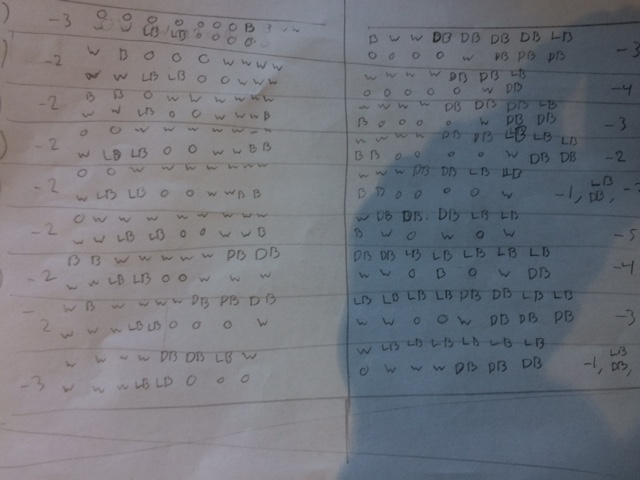 -3 O O O O O O O B
LB LB O O O
-2 W B O O O W W W W
W W LB LB O O W W W
-2 B B O W W W W W W
W W LB O O W W B
-2 O O W W W W W W
W LB LB O O W W B B
-2 O O W W W W W W W
W LB LB O O W W B B
-2 O W W W W W W W
W W LB LB O O W W B
-2 B B W W W W W DB DB
W W LB LB O O W W W
- W B W W W DB DB DB
2 W W W LB LB O O O W
W W W W DB DB LB W
-3 W W W LB LB O O O
B W W DB DB DB DB LB
O O O O W DB DB DB -3
W W W W DB DB LB
O O O O O W DB -4
W W W W DB DB DB LB
B O O O O W DB DB -3
W W W W DB DB LB LB LB
B B O O O O W DB DB -2
W W W DB DB LB LB
B B O O O O W -1, LB DB,
W DB DB DB LB LB
B W O W O W -5
DB DB LB LB LB LB LB
W W O B O W DB -4
LB LB LB LB DB DB LB LB
W W O O W DB DB DB -3
W LB LB LB LB LB LB
O W W W DB DB DB -1, LB DB,